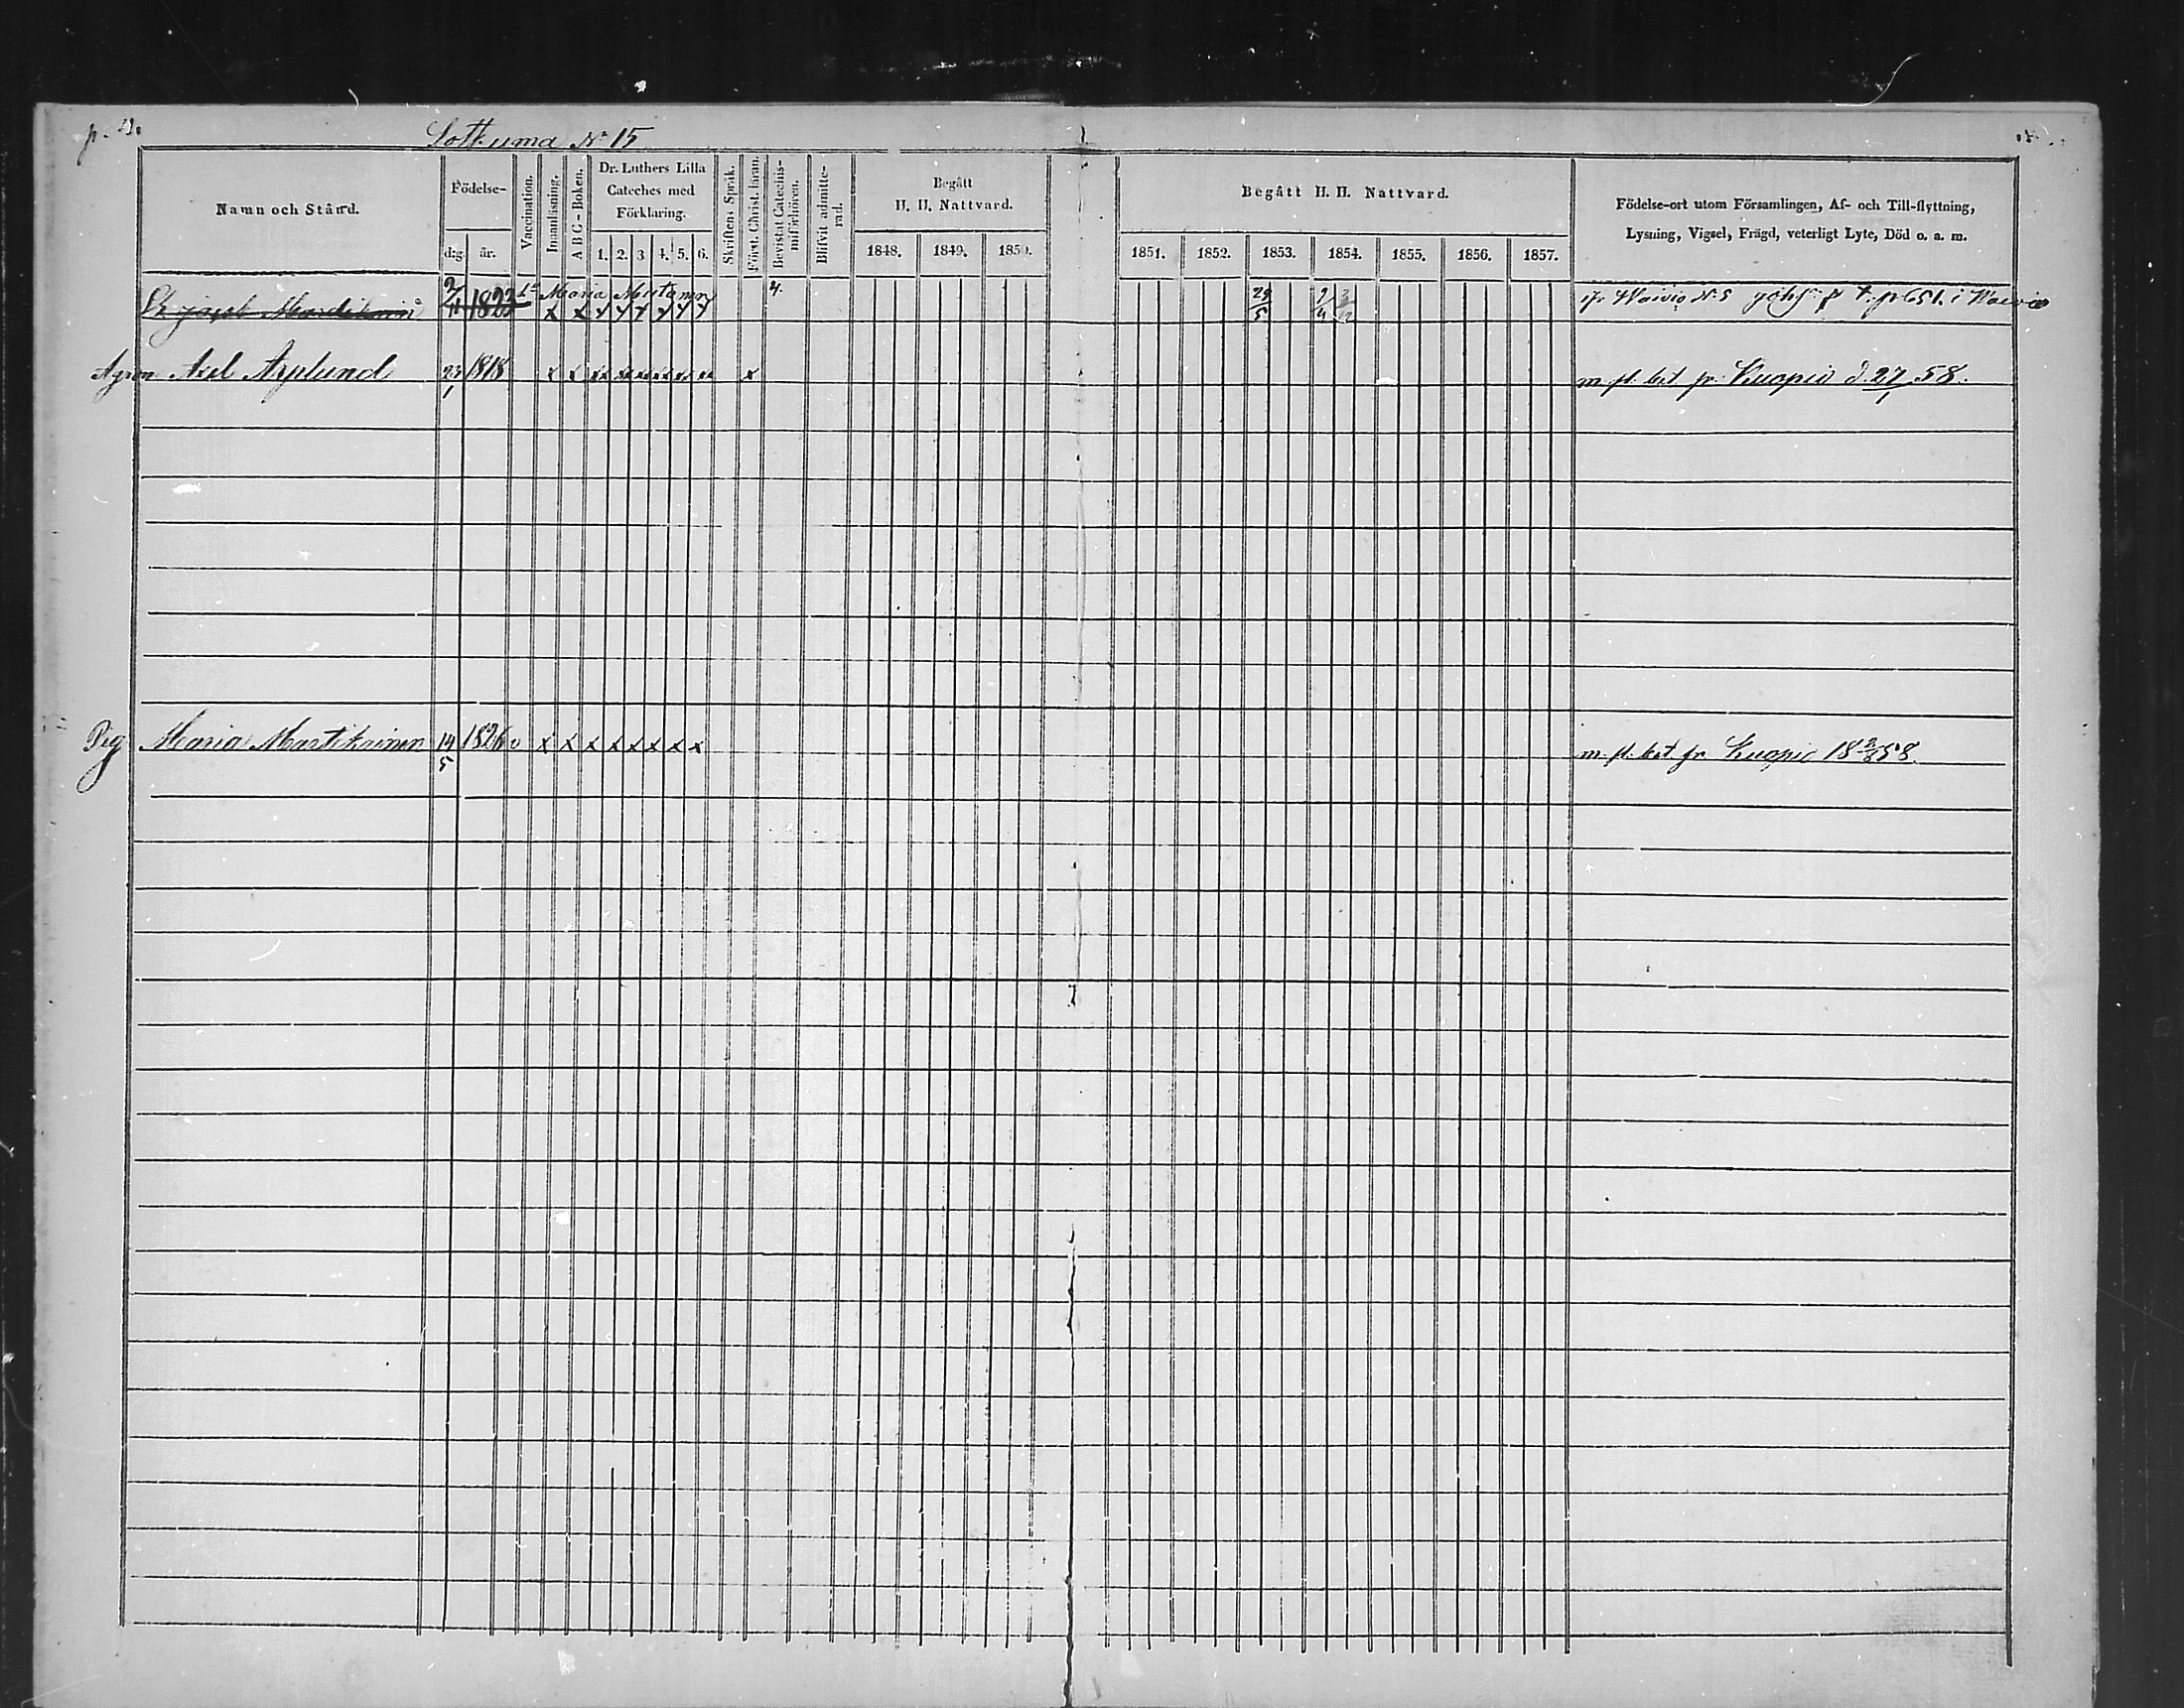 Sotkuma No 15
Namn och Stånd.
Födelse-
d:g. år.
Vaccination.
Innanläsning.
A B C - Boken.
Dr. Luthers Lilla
Cateches med
Förklaring.
1. 2. 3 4. 5. 6.
Skriftens Språk.
Först. Christ. läran.
Bevistat Catechis-
misförhören.
Blifvit admitte-
rad.
Begått
H. H. Nattvard.
1848. 1849. 1850.
Begått H. H. Nattvard.
1851. 1852. 1853. 1854. 1855. 1856. 1857.
Födelse-ort utom Församlingen, Af- och Till-flyttning,
Lysning, Vigsel, Frägd, veterligt Lyte, Död o. a. m.
2/11 1823 Maria 29/5 No 5 p 651. i
Agron Axel Asplund 23/1 1818 x x xx xx xx xx xx xx x m. fl. bet. fr. Kuopio d. 27/1 58.
Pig Maria Martikainen 14/5 1826 v x x x x x x x x m. fl. bet. fr. Kuopio